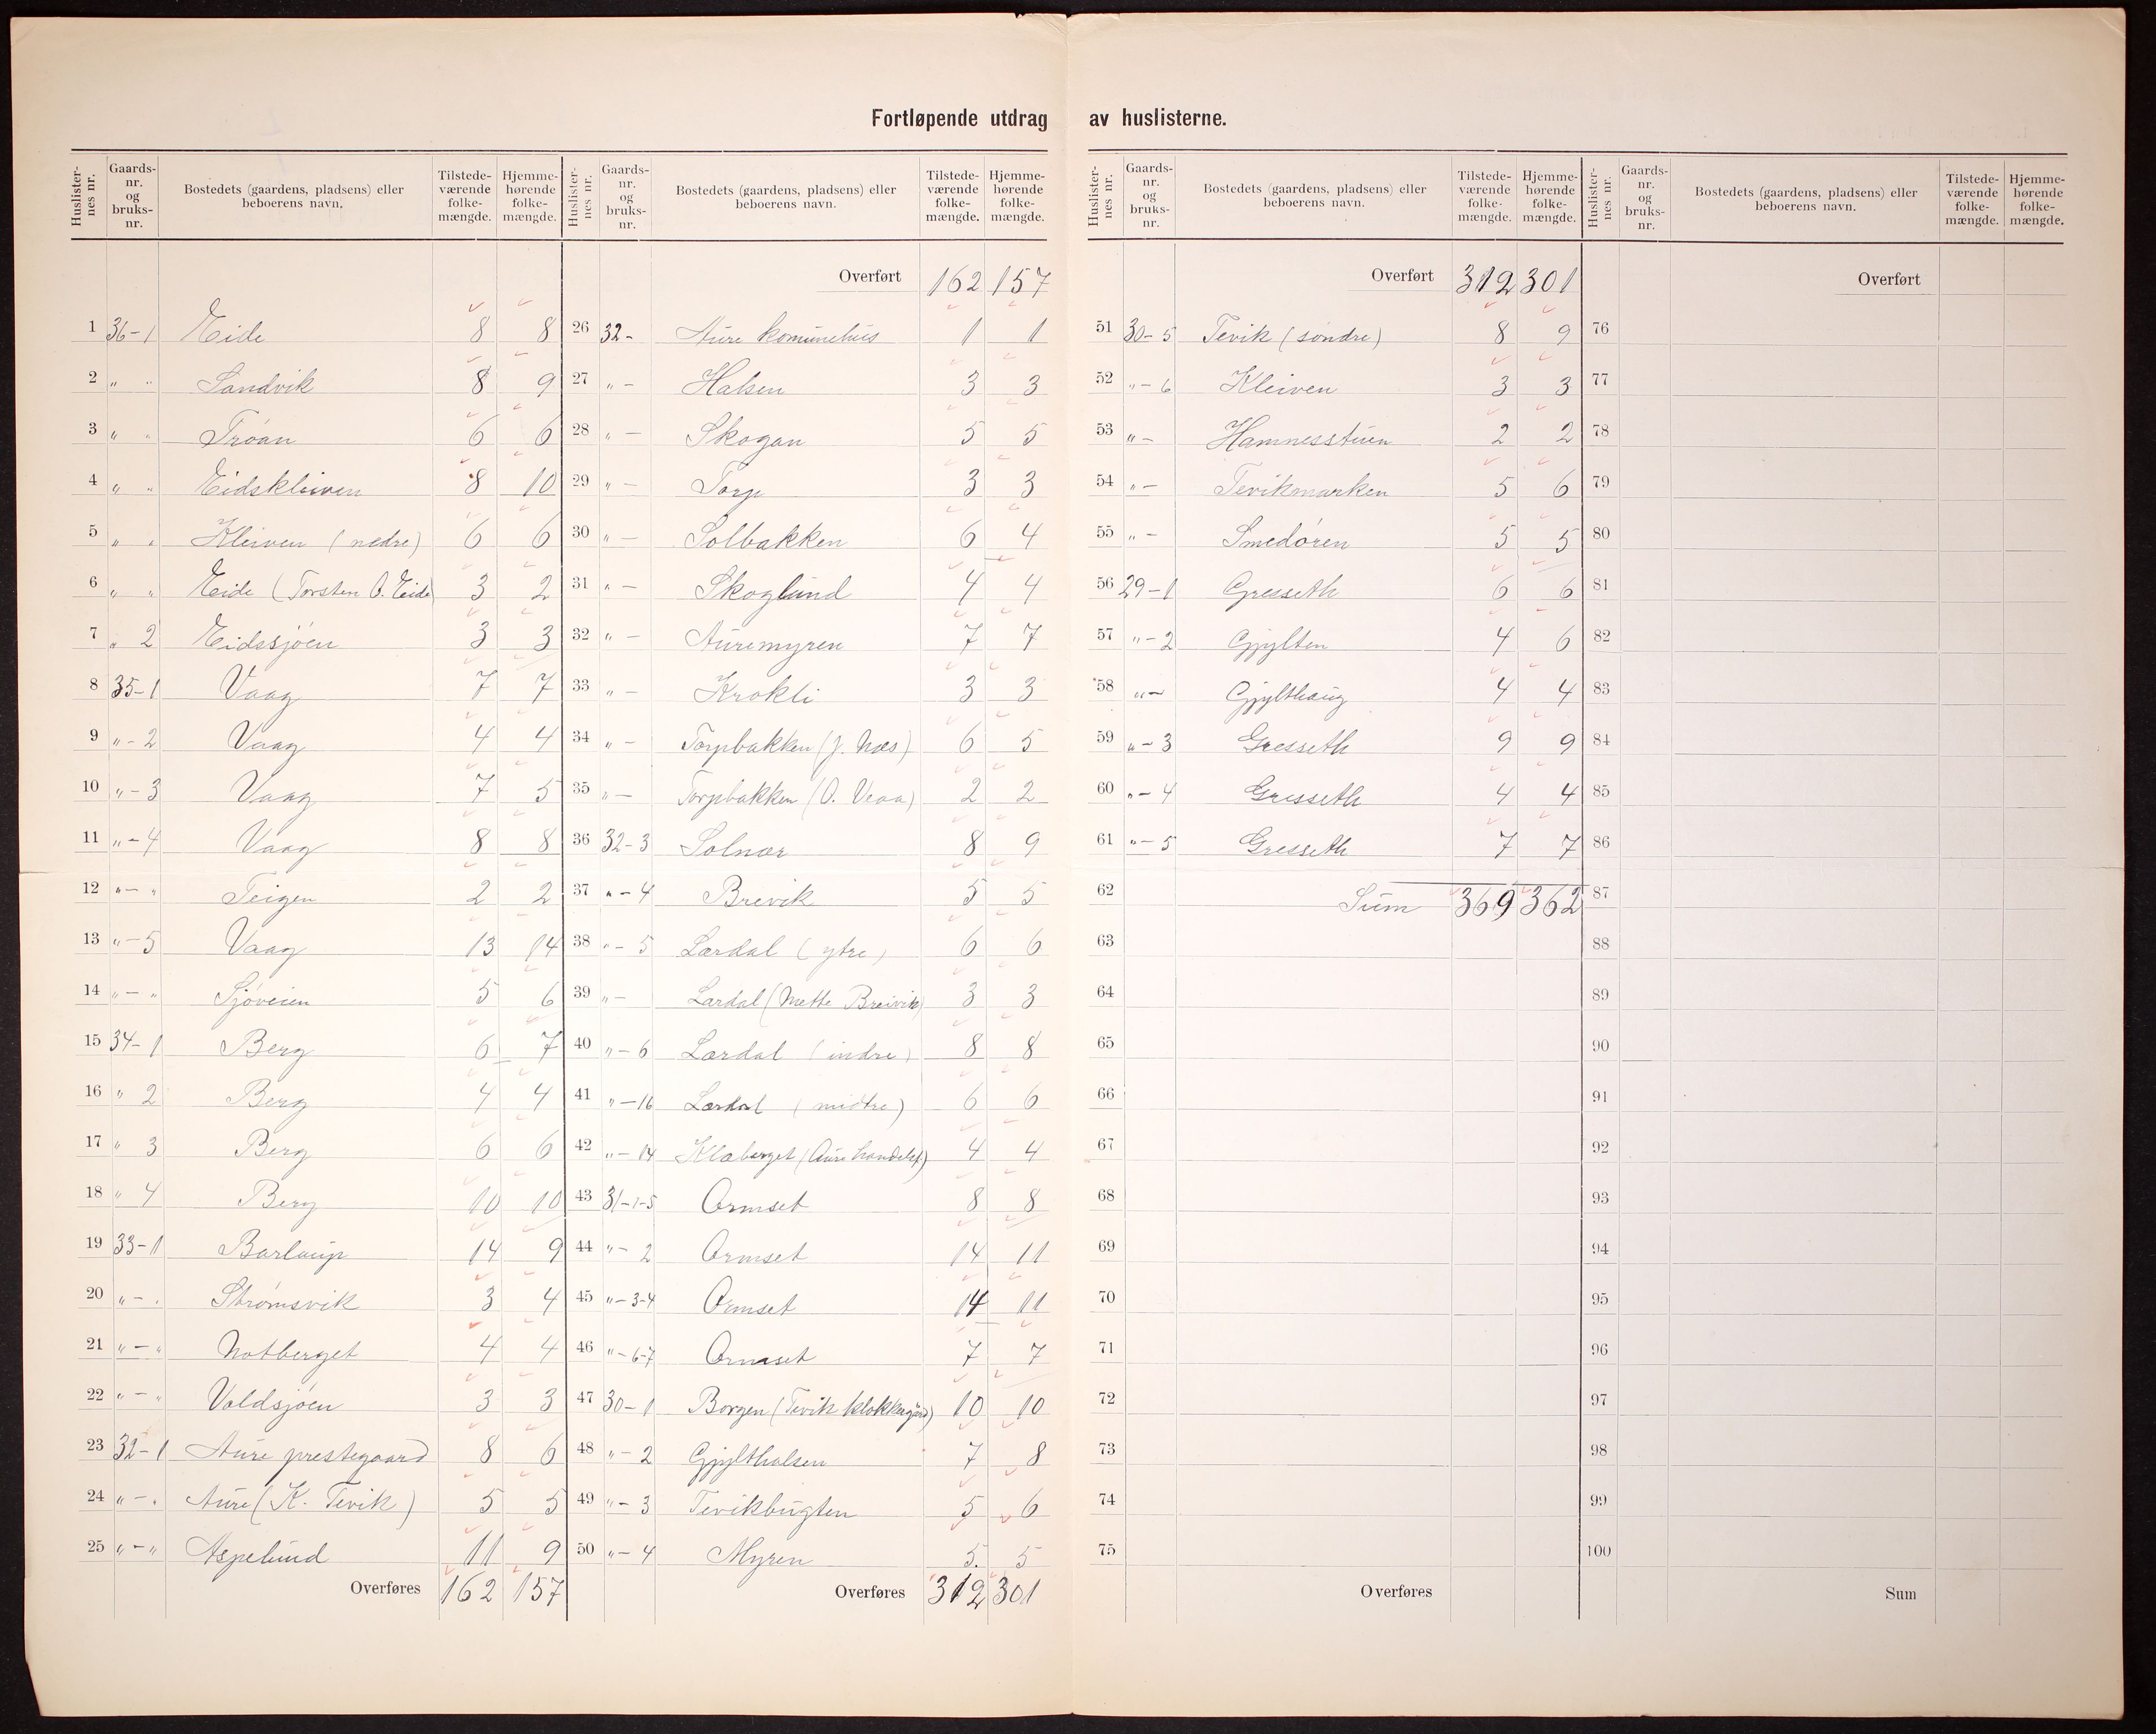 Fortløpende utdrag av huslisterne.
Huslisternes nr. | Gaards-nr. og bruks-nr. | Bostedets (gaardens, pladsens) eller beboerens navn. | Tilstedeværende folkemængde. | Hjemmehørende folkemængde.
1 36-1 Eide 8 8
2 " " Sandvik 8 9
3 " " Trøan 6 6
4 " " Eidskleiven 8 10
5 " " Kleiven (nedre) 6 6
6 " " Eide (Torsten O. Eide) 3 2
7 " 2 Eidssjøen 3 3
8 35-1 Vaag 7 7
9 "-2 Vaag 4 4
10 "-3 Vaag 7 5
11 "-4 Vaag 8 8
12 "-" Teigen 2 2
13 "-5 Vaag 13 14
14 "-" Sjøveien 5 6
15 34-1 Berg 6 7
16 " 2 Berg 4 4
17 " 3 Berg 6 6
18 " 4 Berg 10 10
19 33-1 Barlaup 14 9
20 "-" Strømsvik 3 4
21 "-" Notberget 4 4
22 "-" Valdsjøen 3 3
23 32-1 Aure prestegaard 8 6
24 "-" Aure (K. Tevik) 5 5
25 "-" Aspelund 11 9
Overføres 162 157
Huslisternes nr. | Gaards-nr. og bruks-nr. | Bostedets (gaardens, pladsens) eller beboerens navn. | Tilstedeværende folkemængde. | Hjemmehørende folkemængde.
Overført 162 157
26 32- Aure komunehus 1 1
27 "- Halsen 3 3
28 "- Skogan 5 5
29 "- Torp 3 3
30 "- Solbakken 6 4
31 "- Skoglund 4 4
32 "- Auremyren 7 7
33 "- Krokli 3 3
34 "- Torpbakken (J. Næs) 6 5
35 "- Torpbakken (O. Veaa) 2 2
36 32-3 Solnør 8 9
37 "-4 Brevik 5 5
38 "-5 Lærdal (ytre) 6 6
39 "- Lærdal (Mette Breivik) 3 3
40 "-6 Lærdal (indre) 8 8
41 "-16 Lærdal (midtre) 6 6
42 "-14 Klaberget (Aure handelsf) 4 4
43 31-1-5 Ormset 8 8
44 "-2 Ormset 14 11
45 "-3-4 Ormset 14 11
46 "-6-7 Ormset 7 7
47 30-1 Borgen (Tevik klokkergård) 10 10
48 "-2 Gjylthalsen 7 8
49 "-3 Tevikbugten 5 6
50 "-4 Myren 5. 5
Overføres 312 301
Huslisternes nr. | Gaards-nr. og bruks-nr. | Bostedets (gaardens, pladsens) eller beboerens navn. | Tilstedeværende folkemængde. | Hjemmehørende folkemængde.
Overført 312 301
51 30-5 Tevik (søndre) 8 9
52 "-6 Kleiven 3 3
53 "- Hamnesstuen 2 2
54 "- Tevikmarken 5 6
55 "- Smedøren 5 5
56 29-1 Gresseth 6 6
57 "-2 Gjylten 4 6
58 "- Gjylthaug 4 4
59 "-3 Gresseth 9 9
60 "-4 Gresseth 4 4
61 "-5 Gresseth 7 7
62 Sum 369 362
63
64
65
66
67
68
69
70
71
72
73
74
75
Overføres
Huslisternes nr. | Gaards-nr. og bruks-nr. | Bostedets (gaardens, pladsens) eller beboerens navn. | Tilstedeværende folkemængde. | Hjemmehørende folkemængde.
Overført
76
77
78
79
80
81
82
83
84
85
86
87
88
89
90
91
92
93
94
95
96
97
98
99
100
Sum